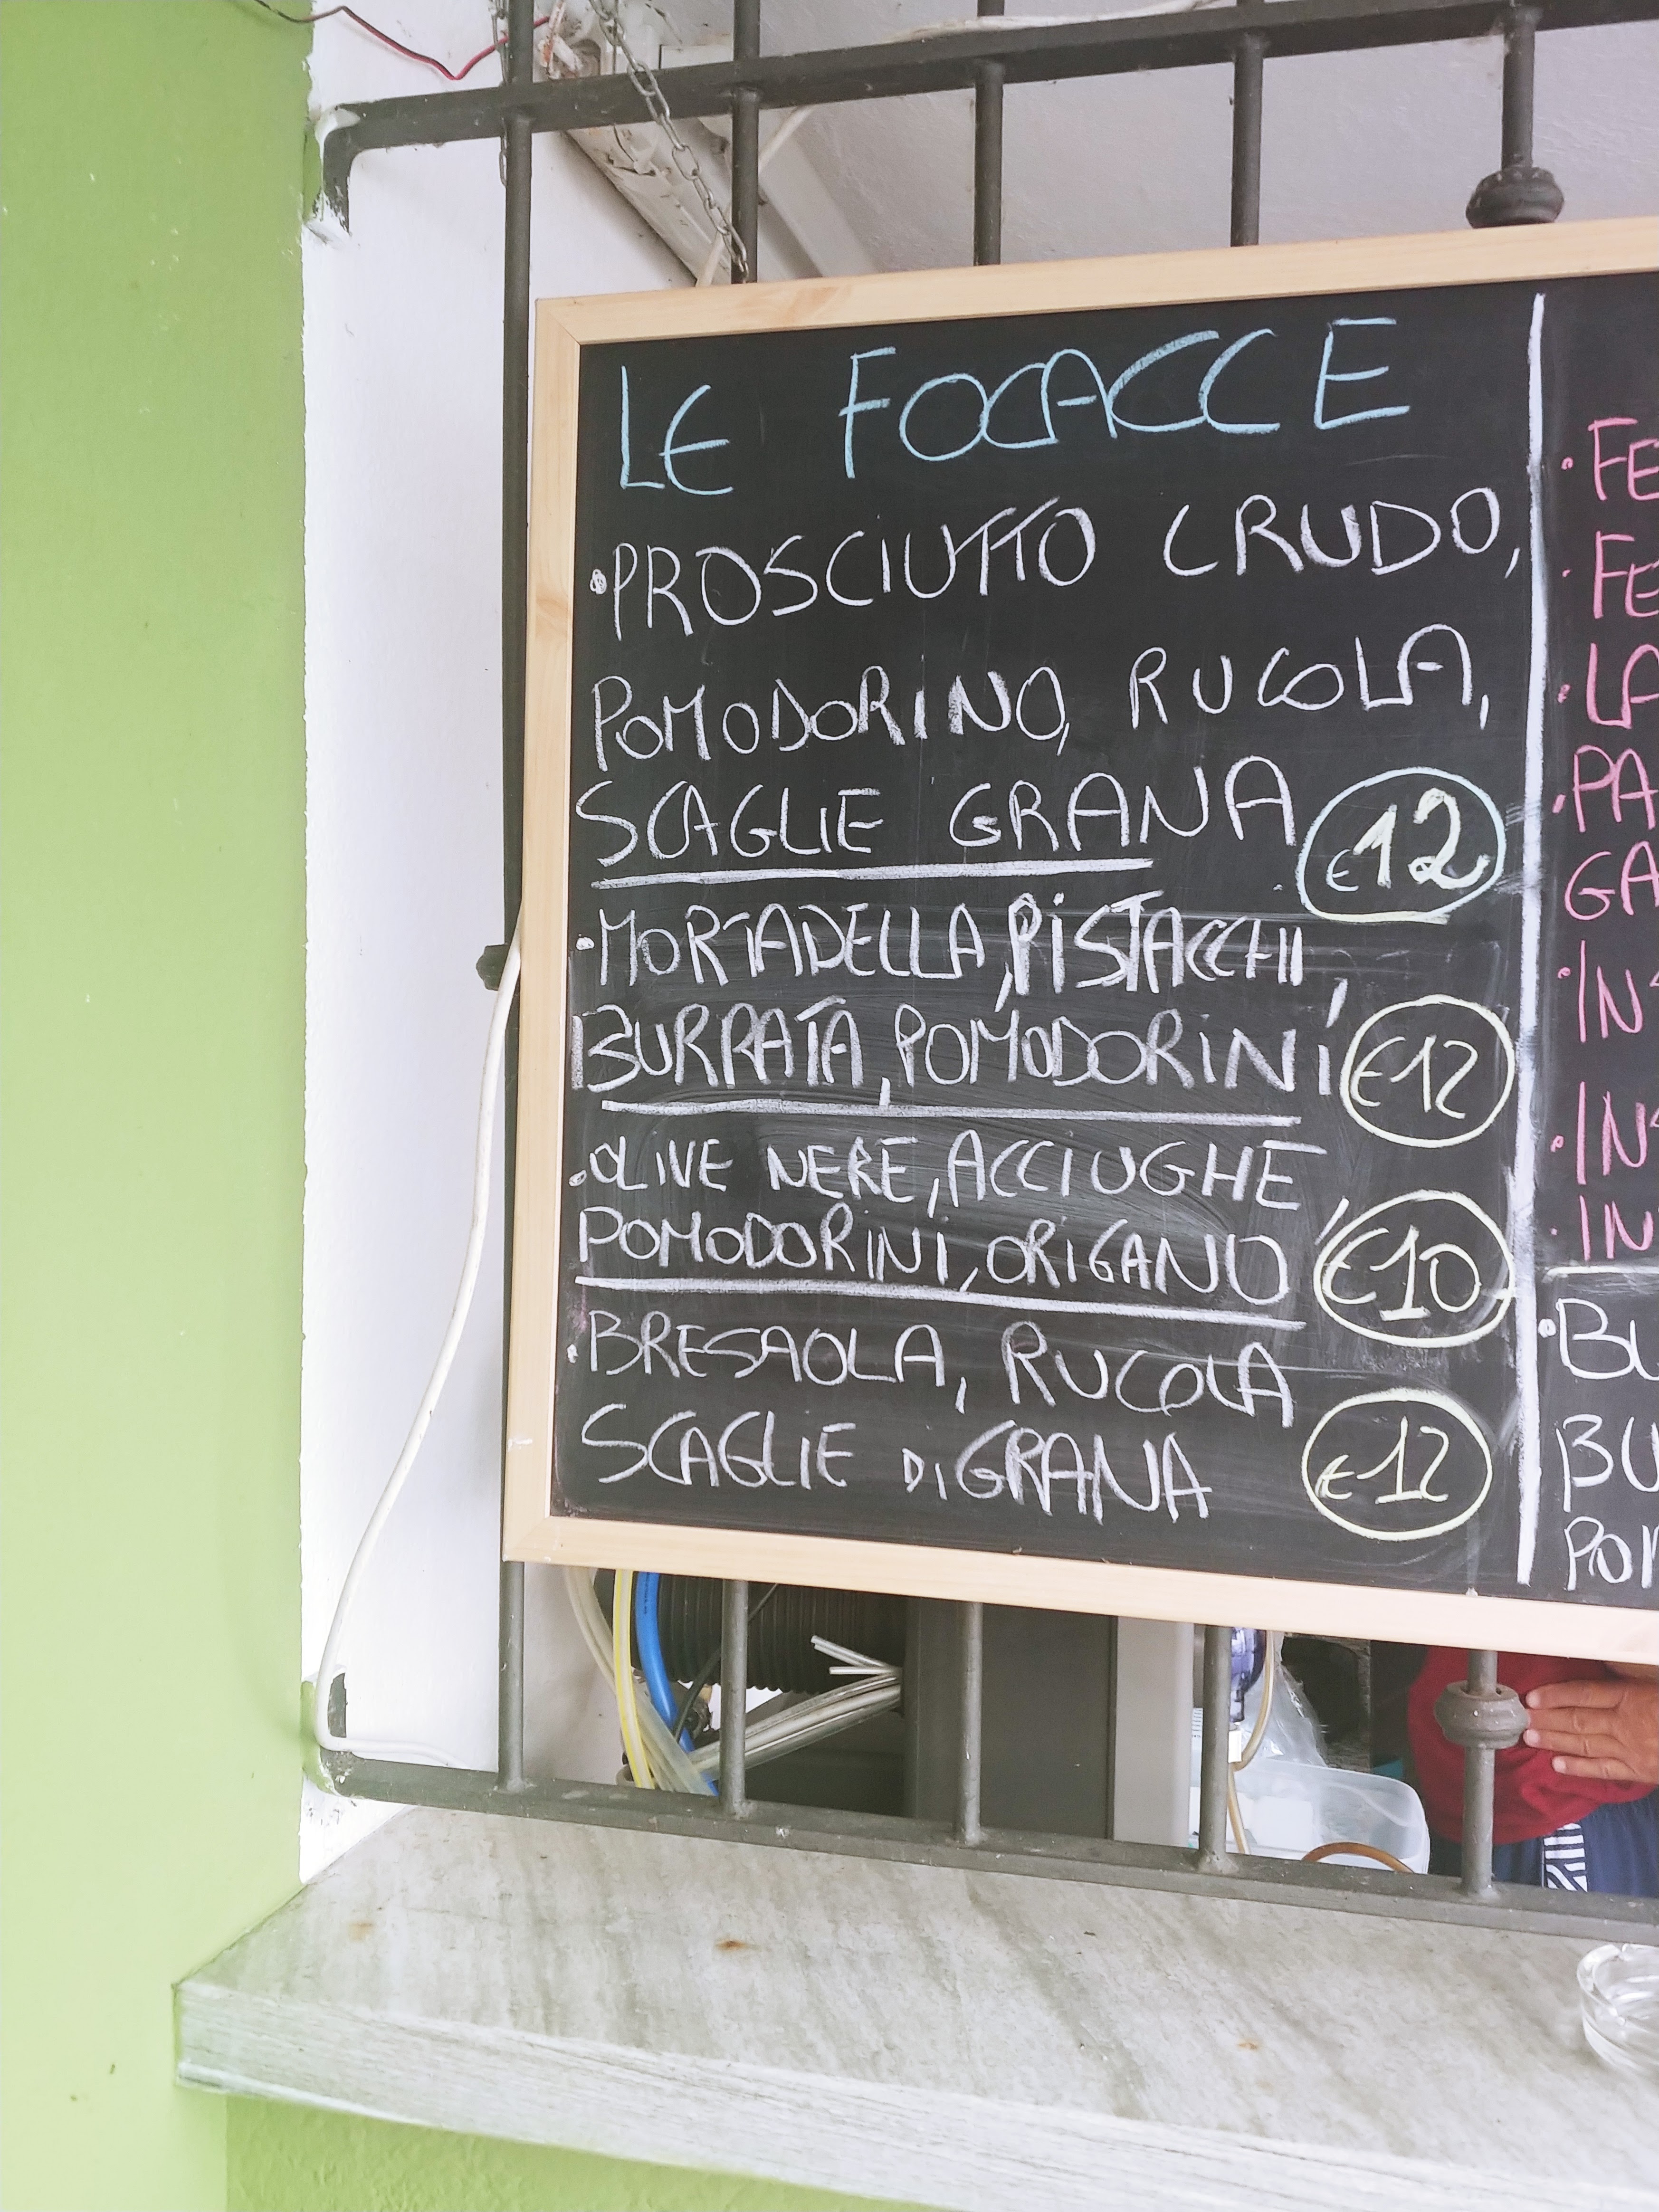 LE FOCACCE
•PROSCIUTTO CRUDO,
POMODORINO, RUCOLA,
SCAGLIE GRANA €12
•MORTADELLA, PISTACCHI,
BURRATA, POMODORINI €12
•OLIVE NERE, ACCIUGHE,
POMODORINI, ORIGANO €10
•BRESAOLA, RUCOLA
SCAGLIE DI GRANA €12